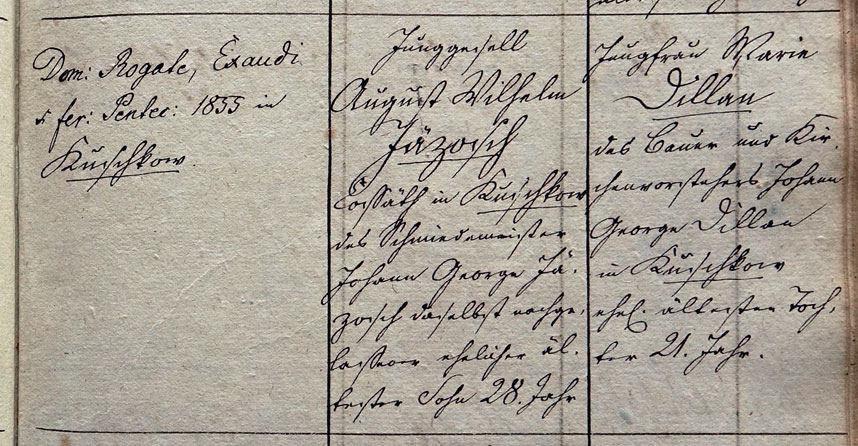 Dom: Rogate, Exaudi
et fer: Pentec: 1855 in
Kuschkow.
Junggesell
August Wilhelm
Jäzosch
Cossäth in Kuschkow
des Schmiedemeister
Johann George Jä-
zosch daselbst nachge-
lassener ehelicher äl-
tester Sohn 28. Jahr
Jungfrau Marie
Dillan
des Bauer und Kir-
chenvorstehers Johann
George Dillan
in Kuschkow
ehel. ältesten Toch-
ter 21. Jahr.